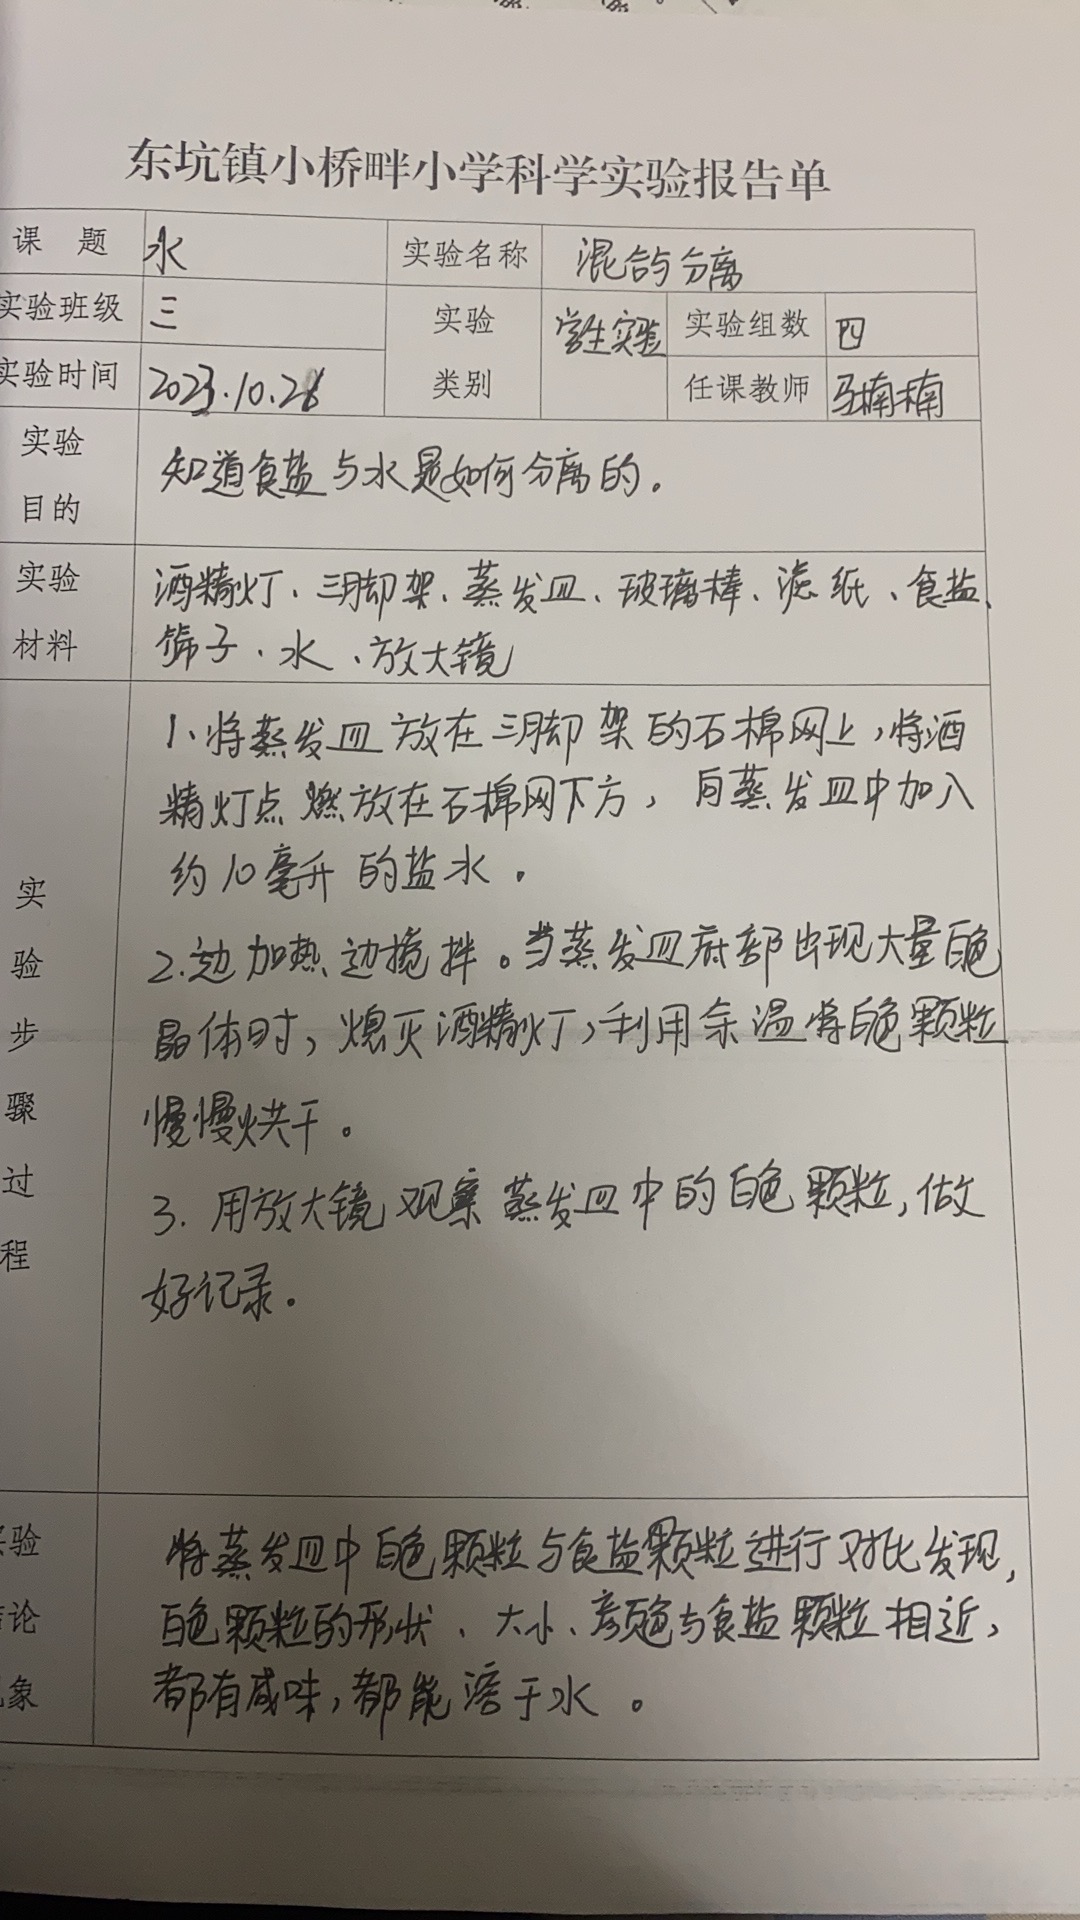 东坑镇小桥畔小学科学实验报告单
课 题 水 实验名称 混合与分离
实验班级 三 实验 学生实验 实验组数 四
实验时间 2023.10.26 类别 任课教师 马楠楠
实验 知道食盐与水是如何分离的。
目的
实验 酒精灯、三脚架、蒸发皿、玻璃棒、滤纸、食盐、
材料 筛子、水、放大镜
1、将蒸发皿放在三脚架的石棉网上,将酒
精灯点燃放在石棉网下方,向蒸发皿中加入
实 约10毫升的盐水。
验 2.边加热边搅拌。当蒸发皿底部出现大量白色
步 晶体时,熄灭酒精灯,利用余温将白色颗粒
骤 慢慢烘干。
过 3.用放大镜观察蒸发皿中的白色颗粒,做
程 好记录。
验 将蒸发皿中白色颗粒与食盐颗粒进行对比发现,
论 白色颗粒的形状、大小、颜色与食盐颗粒相近,
象 都有咸味,都能溶于水。